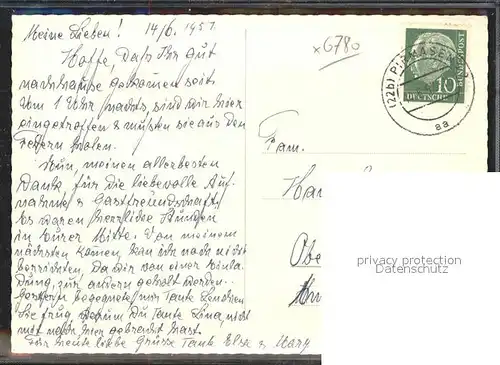 Meine Lieben! 14/6. 1957.
Hoffe, dass Ihr gut
nachhause gekomen seit.
Um 1 Uhr nachts, sind wir hier
eingetroffen & mussten sie aus den
Federn holen.
Nun, meinen allerbesten
Dank, für die liebevolle Auf-
nahme & Gastfreundschaft,
Es waren herrliche Stunden
in Eurer Mitte. Von meinem
nächsten Komen, kan ich noch nicht
berichten, Da wir von einer Einla-
Dung, zur andern geholt werden.
Gestern begegnete mir Tante
Sie frug, warum Du Tante Lina, nicht
mit nach hier gebracht hast.
Für heute liebe Grüsse Tante Else &
x6780
(22b) PIRMASENS
aa
DEUTSCHE BUNDESPOST
10
Fam.
Obe
privacy protection
Datenschutz